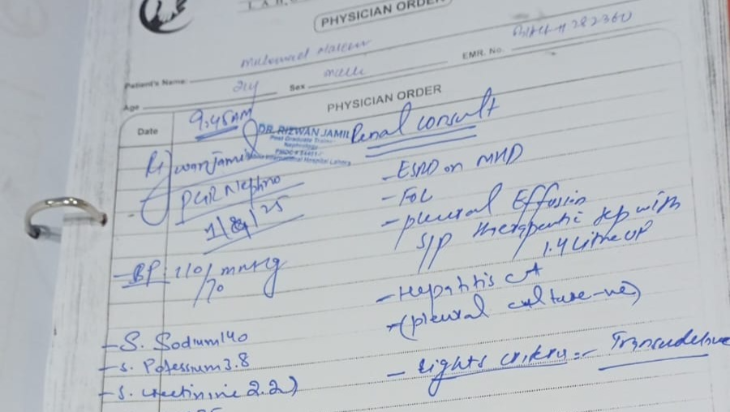 PHYSICIAN ORDER
Patient's Name:
Age
24y
Sex
male
EMR. No.
282360
PHYSICIAN ORDER
Date
9:45AM
DR. RIZWAN JAMIL
Post Graduate
Nephrology
International Hospital Lahore
Rizwan Jameel
PGR Nephro
1/8/25
Renal consult
- ESRD on MHD
- FOL
- pleural Effusion
S/P therapeutic tap with
1.4 Litre UP
- Hepatitis C+
- (pleural culture -ve)
- Lights criteria :- Transudative
- BP: 110/70 mmHg
- S. Sodium 140
- S. Potessium 3.8
- S. creatinine 2.2